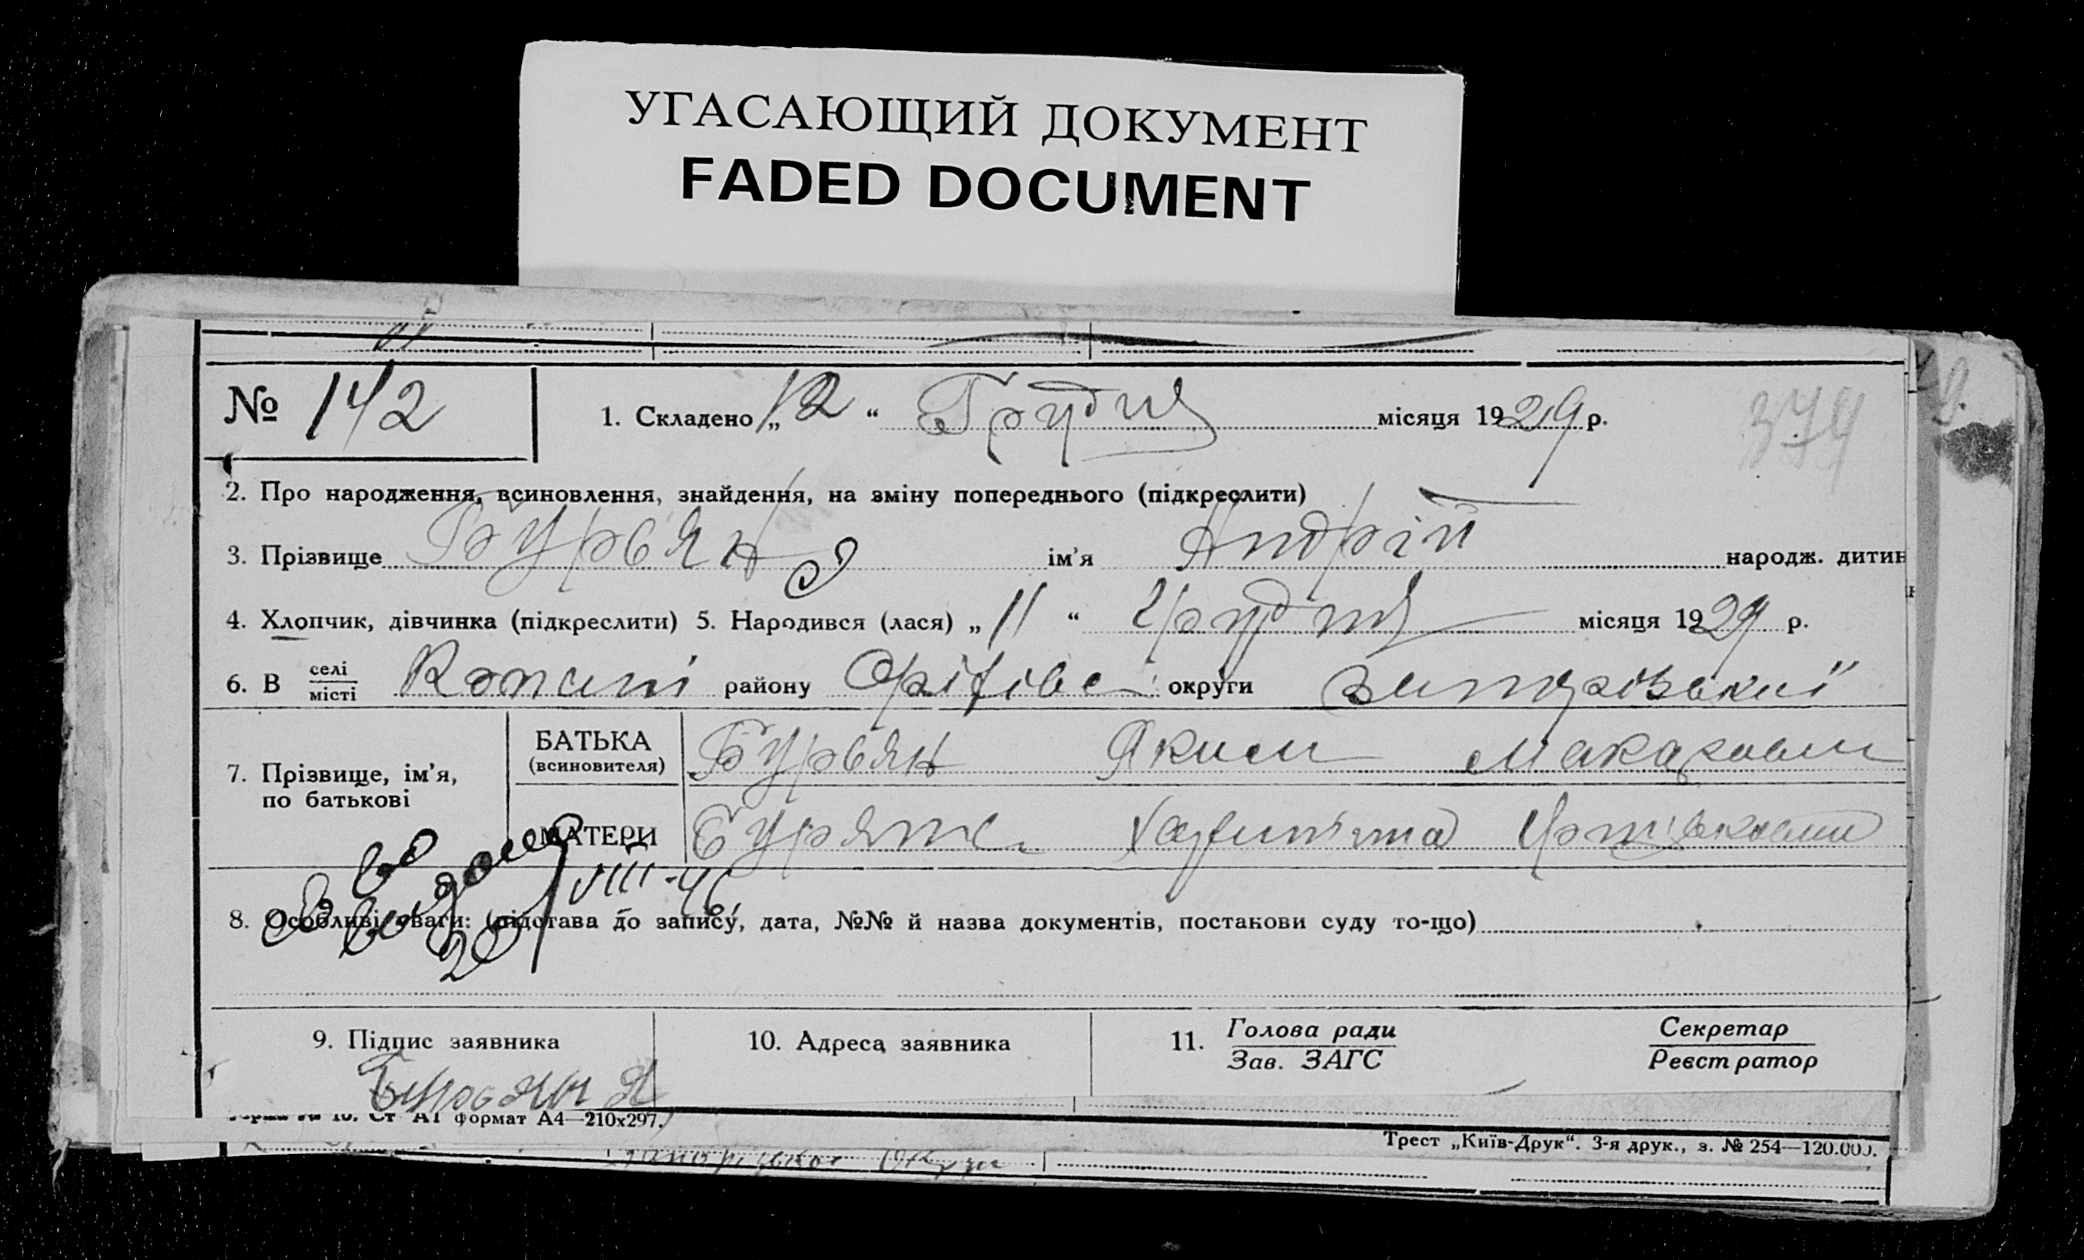 УГАСАЮЩИЙ ДОКУМЕНТ
FADED DOCUMENT
№ 142
1. Складено „12“ Грудня місяця 1929 р.
379
2. Про народження, всиновлення, знайдення, на зміну попереднього (підкреслити)
3. Прізвище Бурвян ім’я Андрій народж. дитин
4. Хлопчик, дівчинка (підкреслити) 5. Народився (лася) „11“ Грудня місяця 1929 р.
6. В селі/місті Копани району Оріхівск округи Запорізькиї
7. Прізвище, ім’я, по батькові
БАТЬКА (всиновителя) Бурвян Яким Макарович
МАТЕРИ
20/VIII-46
8. Особливі уваги: (підстава до запису, дата, №№ й назва документів, постакови суду то-що)
9. Підпис заявника
10. Адреса заявника
11. Голова ради / Зав. ЗАГС
Секретар / Реєстратор
Бурвян Я
Ст А1 формат А4—210х297.
Трест „Київ-Друк“. 3-я друк., з. № 254—120.000.